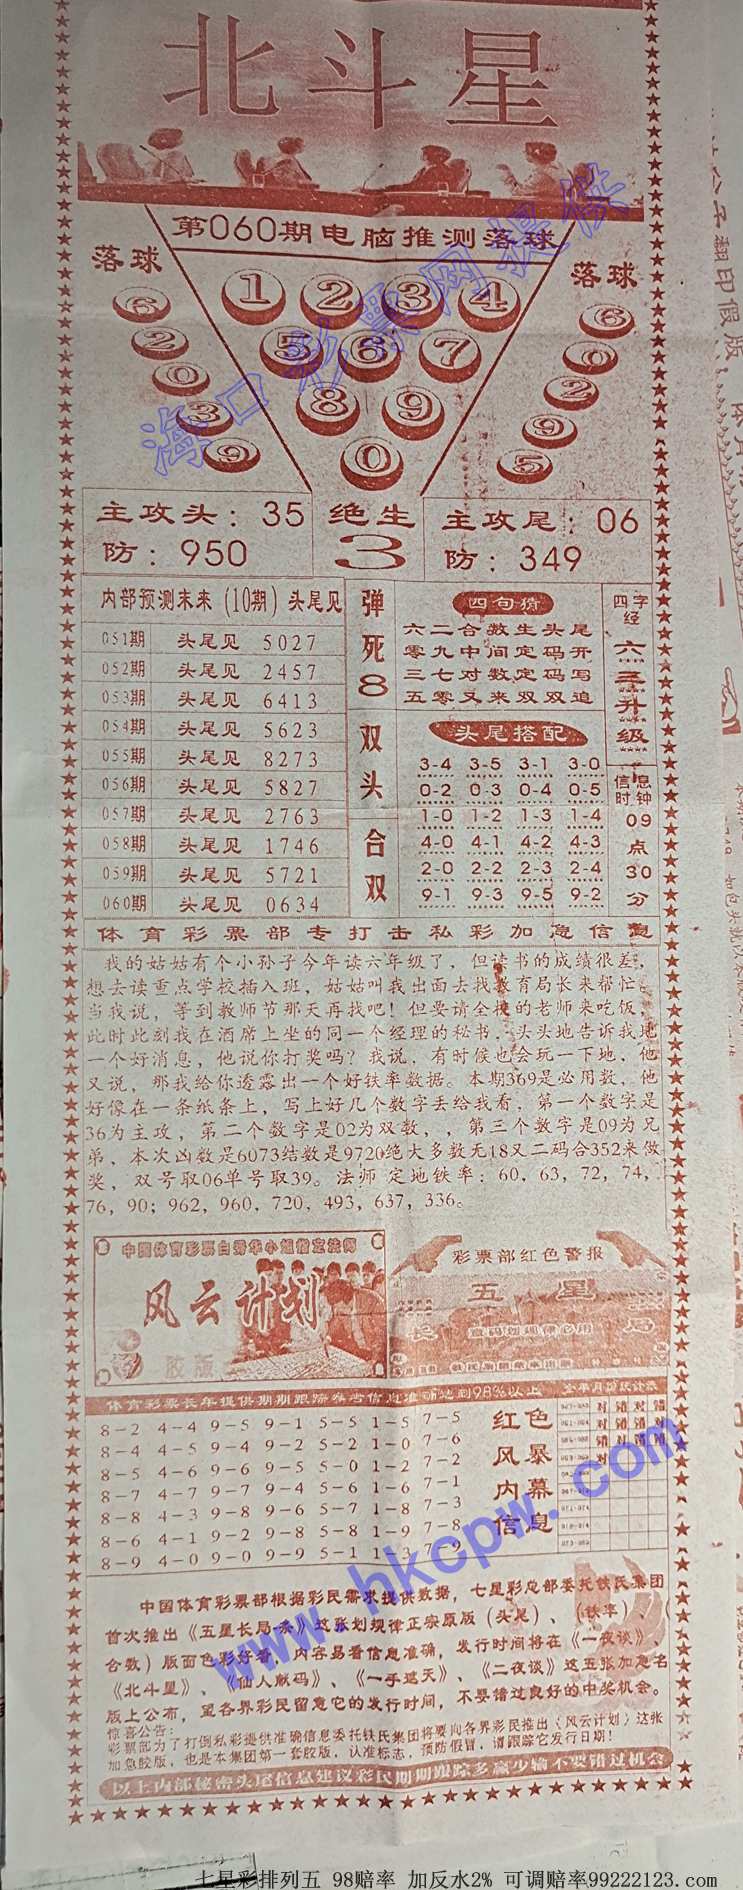 北斗星
第060期电脑推测落球
落球
6
2
0
3
9
1 2 3 4
5 6 7
8 9
0
落球
6
0
2
9
5
主攻头：35
防：950
绝生
3
主攻尾：06
防：349
内部预测末来（10期）头尾见
051期 头尾见 5027
052期 头尾见 2457
053期 头尾见 6413
054期 头尾见 5623
055期 头尾见 8273
056期 头尾见 5827
057期 头尾见 2763
058期 头尾见 1746
059期 头尾见 5721
060期 头尾见 0634
弹死8
双头
合双
四句猜
六二合数生头尾
零九中间定码开
三七对数定码写
五零又来双双追
头尾搭配
3-4 3-5 3-1 3-0
0-2 0-3 0-4 0-5
1-0 1-2 1-3 1-4
4-0 4-1 4-2 4-3
2-0 2-2 2-3 2-4
9-1 9-3 9-5 9-2
四字经
六三升级
信息时钟
09点30分
体育彩票部专打击私彩加急信息
我的姑姑有个小孙子今年读六年级了，但读书的成绩很差，
想去读重点学校插入班，姑姑叫我出面去找教育局长来帮忙，
当我说，等到教师节那天再找吧！但要请全校的老师来吃饭，
此时此刻我在酒席上坐的同一个经理的秘书，头头地告诉我地
一个好消息，他说你打奖吗？我说，有时候也会玩一下地，他
又说，那我给你透露出一个好铁率数据。本期369是必用数，他
好像在一条纸条上，写上好几个数字丢给我看，第一个数字是
36为主攻，第二个数字是02为双数，，第三个数字是09为兄
弟，本次凶数是6073结数是9720绝大多数无18又二码合352来做
奖，双号取06单号取39。法师 定地铁率：60，63，72，74，
76，90；962，960，720，493，637，336。
中国体育彩票白秀华小姐指定法师
风云计划
胶版
彩票部红色警报
五星
长 局
体育彩票长年提供期期跟踪杀号信息准确达到98%以上
8-2 4-4 9-5 9-1 5-5 1-5 7-5
8-4 4-5 9-4 9-2 5-2 1-0 7-6
8-5 4-6 9-6 9-5 5-0 1-2 7-2
8-7 4-7 9-7 9-4 5-6 1-6 7-1
8-8 4-3 9-8 9-6 5-7 1-8 7-3
8-6 4-1 9-2 9-8 5-8 1-9 7-8
8-9 4-0 9-0 9-9 5-1 1-3 7-9
红色
风暴
内幕
信息
对 错 对 错
对 错 对 错
错 对 错 错
对
中国体育彩票部根据彩民需求提供数据，七星彩总部委托铁氏集团
首次推出《五星长局一条》这张划规律正宗原版（头尾）、（铁率）、
合数）版面色彩好看，内容易看信息准确，发行时间将在《一夜谈》、
《北斗星》、《仙人献码》、《一手遮天》、《二夜谈》这五张加急名
版上公布，望各界彩民留意它的发行时间，不要错过良好的中奖机会。
惊喜公告：
彩票部为了打倒私彩提供准确信息委托铁氏集团将要向各界彩民推出《风云计划》这张
加急胶版，也是本集团第一套胶版，认准标志，预防假冒，请跟踪它发行日期！
以上内部秘密头尾信息建议彩民期期跟踪多赢少输不要错过机会
海口彩票网提供
www.hkcpw.com
翻印假版
七星彩排列五 98赔率 加反水2% 可调赔率99222123.com